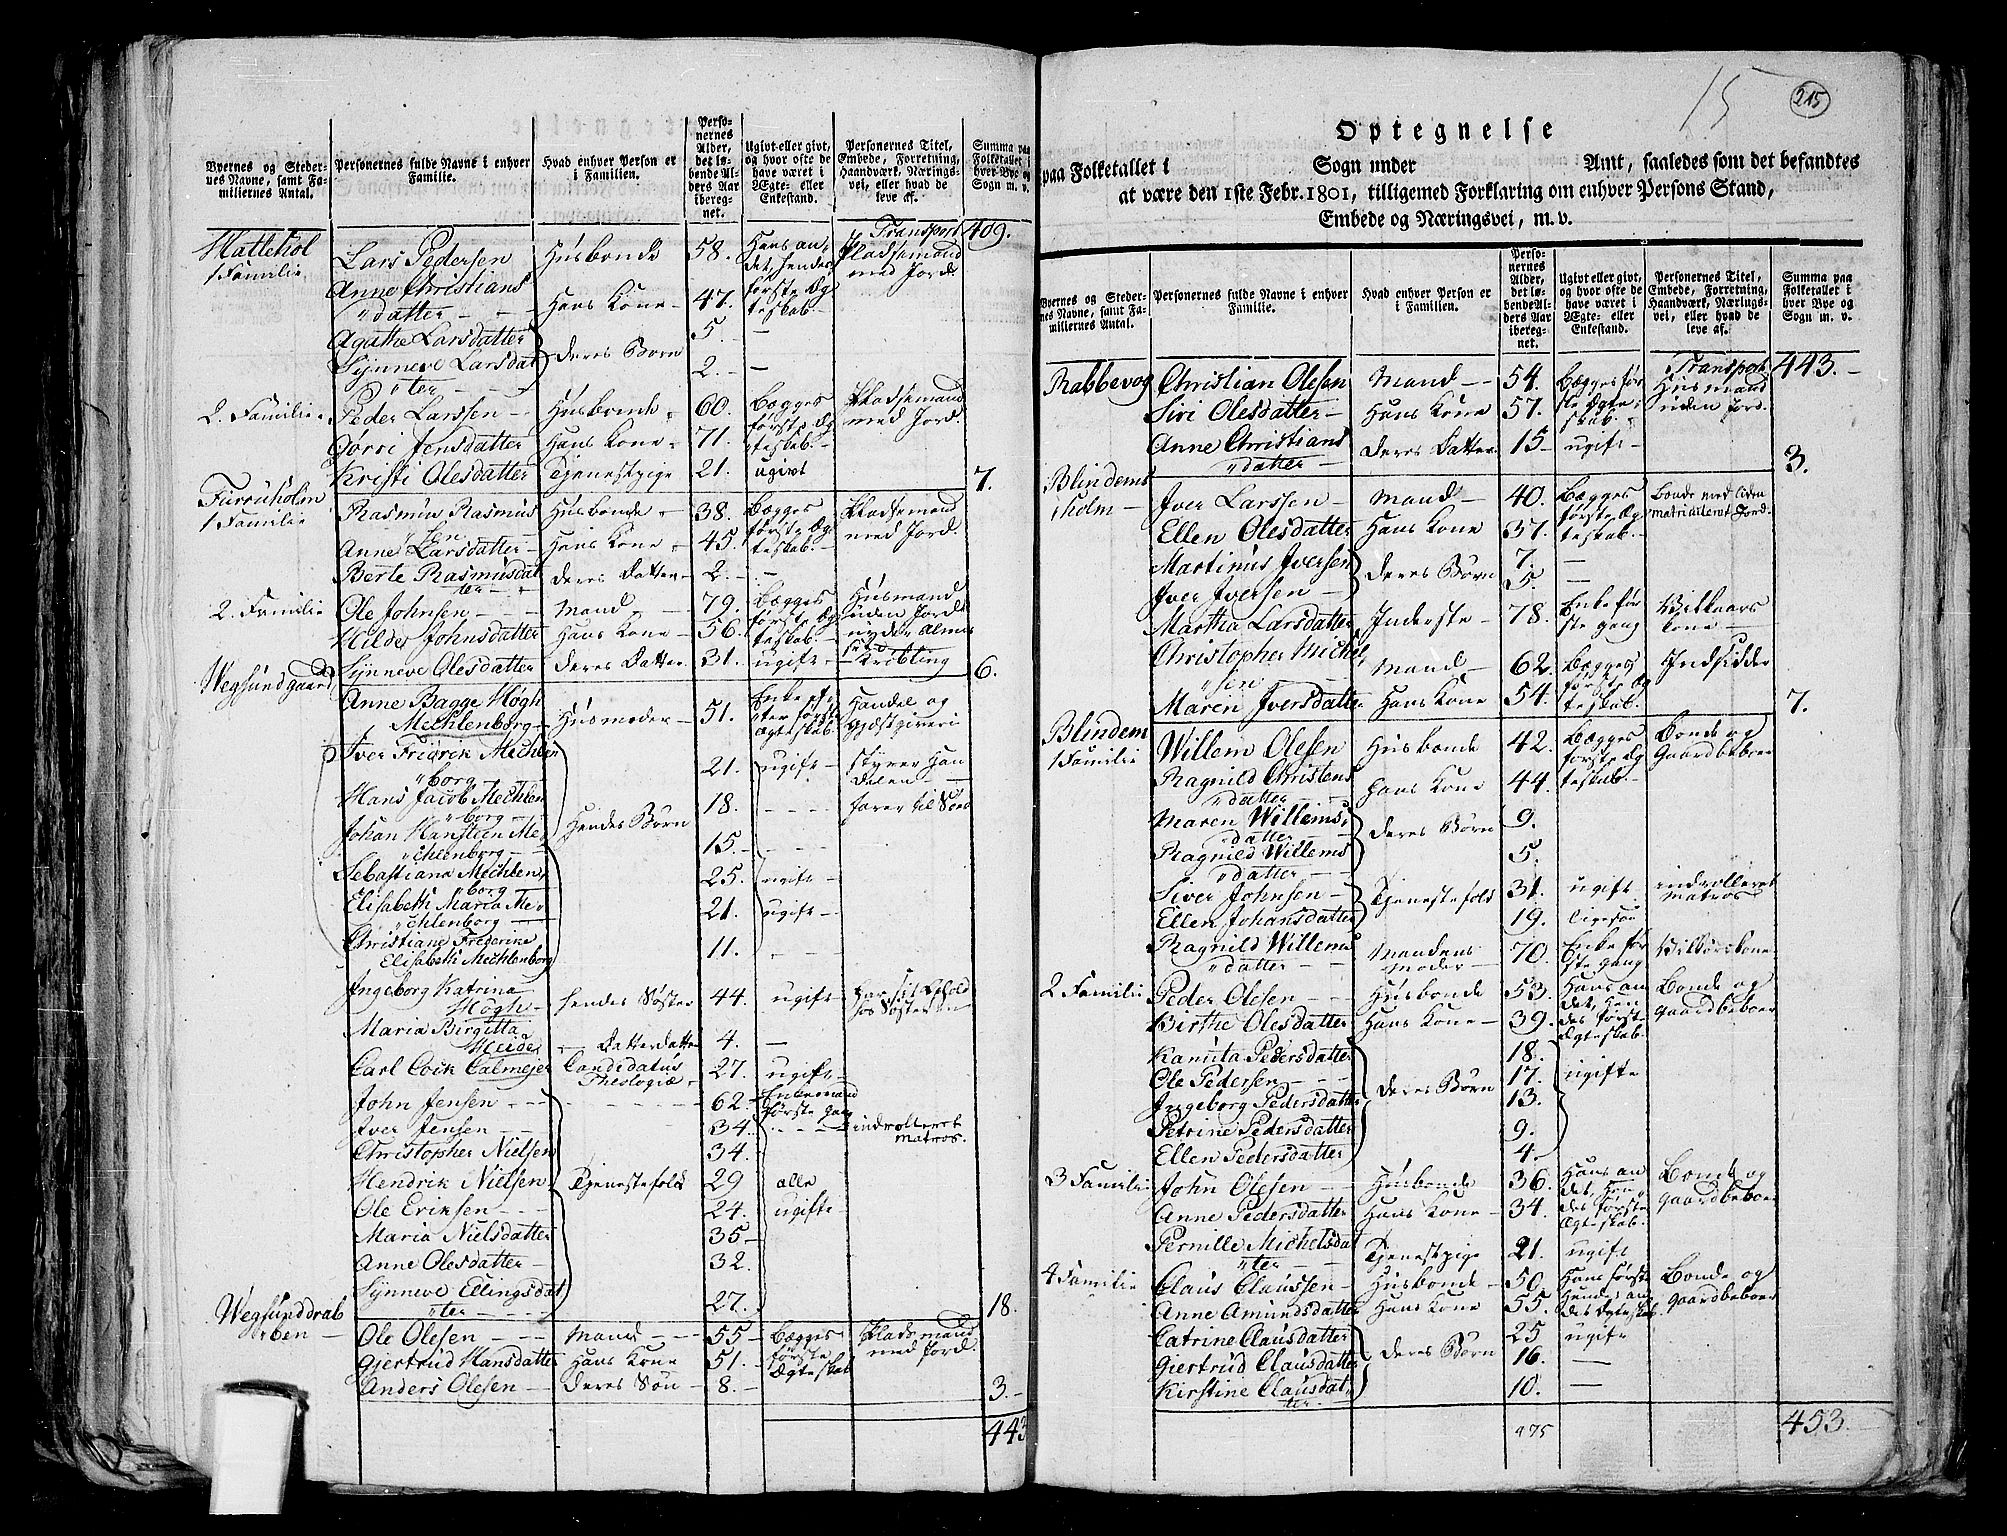 Byernes og Steder-
nes Navne, samt Fa-
miliernes Antal.
Personernes fulde Navne i enhver
Familie.
Hvad enhver Person er
i Familien.
Perso-
nernes
Alder,
det lø-
bende Al-
ders Aar
iberegnet.
Ugivt eller givt,
og hvor ofte de
have været i
Ægte- eller
Enkestand.
Personernes Titel,
Embede, Forretning,
Haandværk, Nærings-
vei, eller hvad de
leve af.
Summa paa
Folketallet i
hver Bye og
Sogn m. v.
Transport 409.
1 Familie
Lars Pedersen Huusbonde 58. Hans an-det, hendes første Ægteskab. Pladsemand med Jord
Anne Christians
datter Hans Kone 47.
Agathe Larsdatter Deres Børn 5 —
Synneve Larsdat
ter 2. —
2. Familie Peder Larssen Huusbonde 60. Begges første Ægteskab. Pladsemand med Jord.
Gørri Jensdatter Hans Kone 71.
Kristi Olesdatter Tjenestpige 21. ugivt 7.
Furruholm
1 Familie Rasmus Rasmus
sen Huusbonde 38. Begges første Ægteskab. Pladsemand med Jord.
Anne Larsdatter Hans Kone 45.
Berte Rasmusdat
ter Deres Datter 2.
2. Familie Ole Johnsen Mand 79. Begges første Ægteskab. Huusmand uden Jord nyder Almisse
Hilde Johnsdatter Hans Kone 56.
Synneve Olesdatter Deres Datter 31. ugift Krøbling 6.
Wegsundgaard
Anne Bagge Høgh
Mechlenborg Huusmoder 51. Enke efter første Ægteskab Handel og Gjæstgiveri
Iver Fredrik Mechlen
borg 21. ugift styrer Handelen
Hans Jacob Mechlen
borg 18. farer til Søes
Johan Hansteen Me
chlenborg Hendes Børn 15.
Sebastiana Mechlen
borg 25. ugift
Elisabeth Maria Me
chlenborg 21. ugift
Christiane Frederike
Elisabeth Mechlenborg 11.
Ingeborg Katrina
Høgh hendes Søster 44. ugift har sit Ophold hos Søsteren
Maria Birgitta
Datterdatter 4. —
Carl Coik Calmejer Candidatus Theologiæ 27. ugift
John Jensen 62. Enkemand første gang
Iver Jensen 34. indrolleret matros.
Christopher Nielsen 34.
Hendrik Nielsen Tjenestefolk 29 alle
Ole Eriksen 24. ugifte
Maria Nielsdatter 35
Anne Olesdatter 32.
Synneve Ellingsdat
ter 27. 18.
Wegsunddrab
ben
Ole Olesen Mand 55 Begges første Ægteskab Pladsmand med Jord.
Gjertrud Hansdatter Hans Kone 51.
Anders Olesen Deres Søn 8. 3.
443
15
215
Optegnelse
paa Folketallet i Sogn under Amt, saaledes som det befandtes
at være den 1ste Febr. 1801, tilligemed Forklaring om enhver Persons Stand,
Embede og Næringsvei, m. v.
Byernes og Steder-
nes Navne, samt Fa-
miliernes Antal.
Personernes fulde Navne i enhver
Familie.
Hvad enhver Person er
i Familien.
Perso-
nernes
Alder,
det lø-
bende Al-
ders Aar
ibereg-
net.
Ugivt eller givt,
og hvor ofte de
have været i
Ægte- eller
Enkestand.
Personernes Titel,
Embede, Forretning,
Haandværk, Nærings-
vei, eller hvad de
leve af.
Summa paa
Folketallet i
hver Bye og
Sogn m. v.
Transport 443.
Rabbevog Christian Olesen Mand 54. Begges første Ægteskab. Huusmand uden Jord.
Siri Olesdatter Hans Kone 57.
Anne Christians
datter Deres Datter 15 ugift 3.
Blindems
holm
Iver Larssen Mand 40. Begges første Ægteskab. Bonde med liden matriculeret Jord.
Ellen Olesdatter Hans Kone 37.
Martinus Iversen Deres Børn 7. —
Iver Iversen 5 —
Martha Larsdatter Inderste 78. Enke første gang Vilkaars kone
Christopher Michel
sen Mand 62. Begges første Ægteskab. Indsidder
Maren Iversdatter Hans Kone 54. 7.
Blindem
1 Familie Willem Olesen Huusbonde 42. Begges første Ægteskab. Bonde og Gaardbeboer
Ragnild Christens
datter Hans Kone 44.
Maren Willems
datter Deres Børn 9.
Ragnild Willems
datter 5.
Siver Johnsen Tjenestefolk 31. ugift indrolleret matros
Ellen Johansdatter 19. ligesaa
Ragnild Willems
datter Mandens Moder 70. Enke første gang Vilkorskone
2 Familie Peder Olesen Huusbonde 53. Hans andet, hendes første Ægteskab. Bonde og Gaardbeboer
Birthe Olesdatter Hans Kone 39.
Kanuta Pedersdatter 18.
Ole Pedersen 17. ugifte
Ingeborg Pedersdatter Deres Børn 13.
Petrine Pedersdatter 9.
Ellen Pedersdatter 4.
3 Familie John Olesen Huusbonde 36. Hans andet, hendes første Ægteskab. Bonde og Gaardbeboer
Anne Pedersdatter Hans Kone 34.
Pernille Michelsdat
ter Tjenestpige 21. ugift
4 Familie Claus Claussen Huusbonde 50. Hans første Hendes andet Ægteskab Bonde og Gaardbeboer
Anne Amundsdatter Hans Kone 55.
Catrine Clausdatter 25 ugift
Giertrud Clausdatter Deres Børn 16. —
Kirstine Clausdat
ter 10. —
475 453.